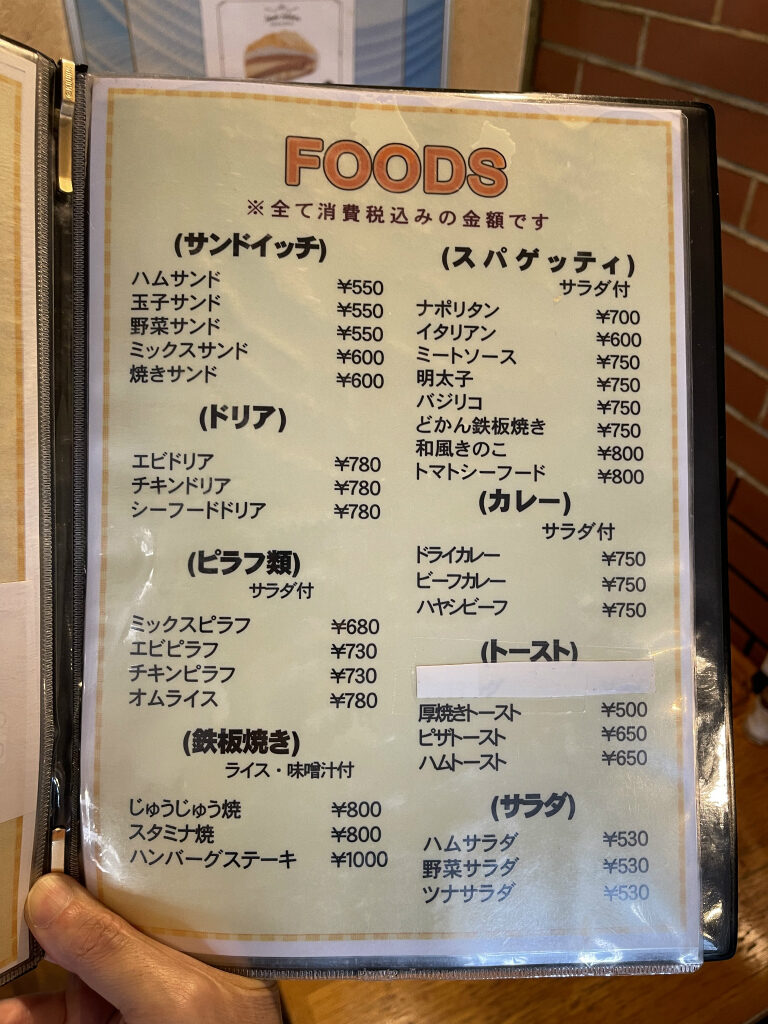 FOODS
※全て消費税込みの金額です
(サンドイッチ)
ハムサンド ¥550
玉子サンド ¥550
野菜サンド ¥550
ミックスサンド ¥600
焼きサンド ¥600
(ドリア)
エビドリア ¥780
チキンドリア ¥780
シーフードドリア ¥780
(ピラフ類)
サラダ付
ミックスピラフ ¥680
エビピラフ ¥730
チキンピラフ ¥730
オムライス ¥780
(鉄板焼き)
ライス・味噌汁付
じゅうじゅう焼 ¥800
スタミナ焼 ¥800
ハンバーグステーキ ¥1000
(スパゲッティ)
サラダ付
ナポリタン ¥700
イタリアン ¥600
ミートソース ¥750
明太子 ¥750
バジリコ ¥750
どかん鉄板焼き ¥750
和風きのこ ¥800
トマトシーフード ¥800
(カレー)
サラダ付
ドライカレー ¥750
ビーフカレー ¥750
ハヤシビーフ ¥750
(トースト)
厚焼きトースト ¥500
ピザトースト ¥650
ハムトースト ¥650
(サラダ)
ハムサラダ ¥530
野菜サラダ ¥530
ツナサラダ ¥530